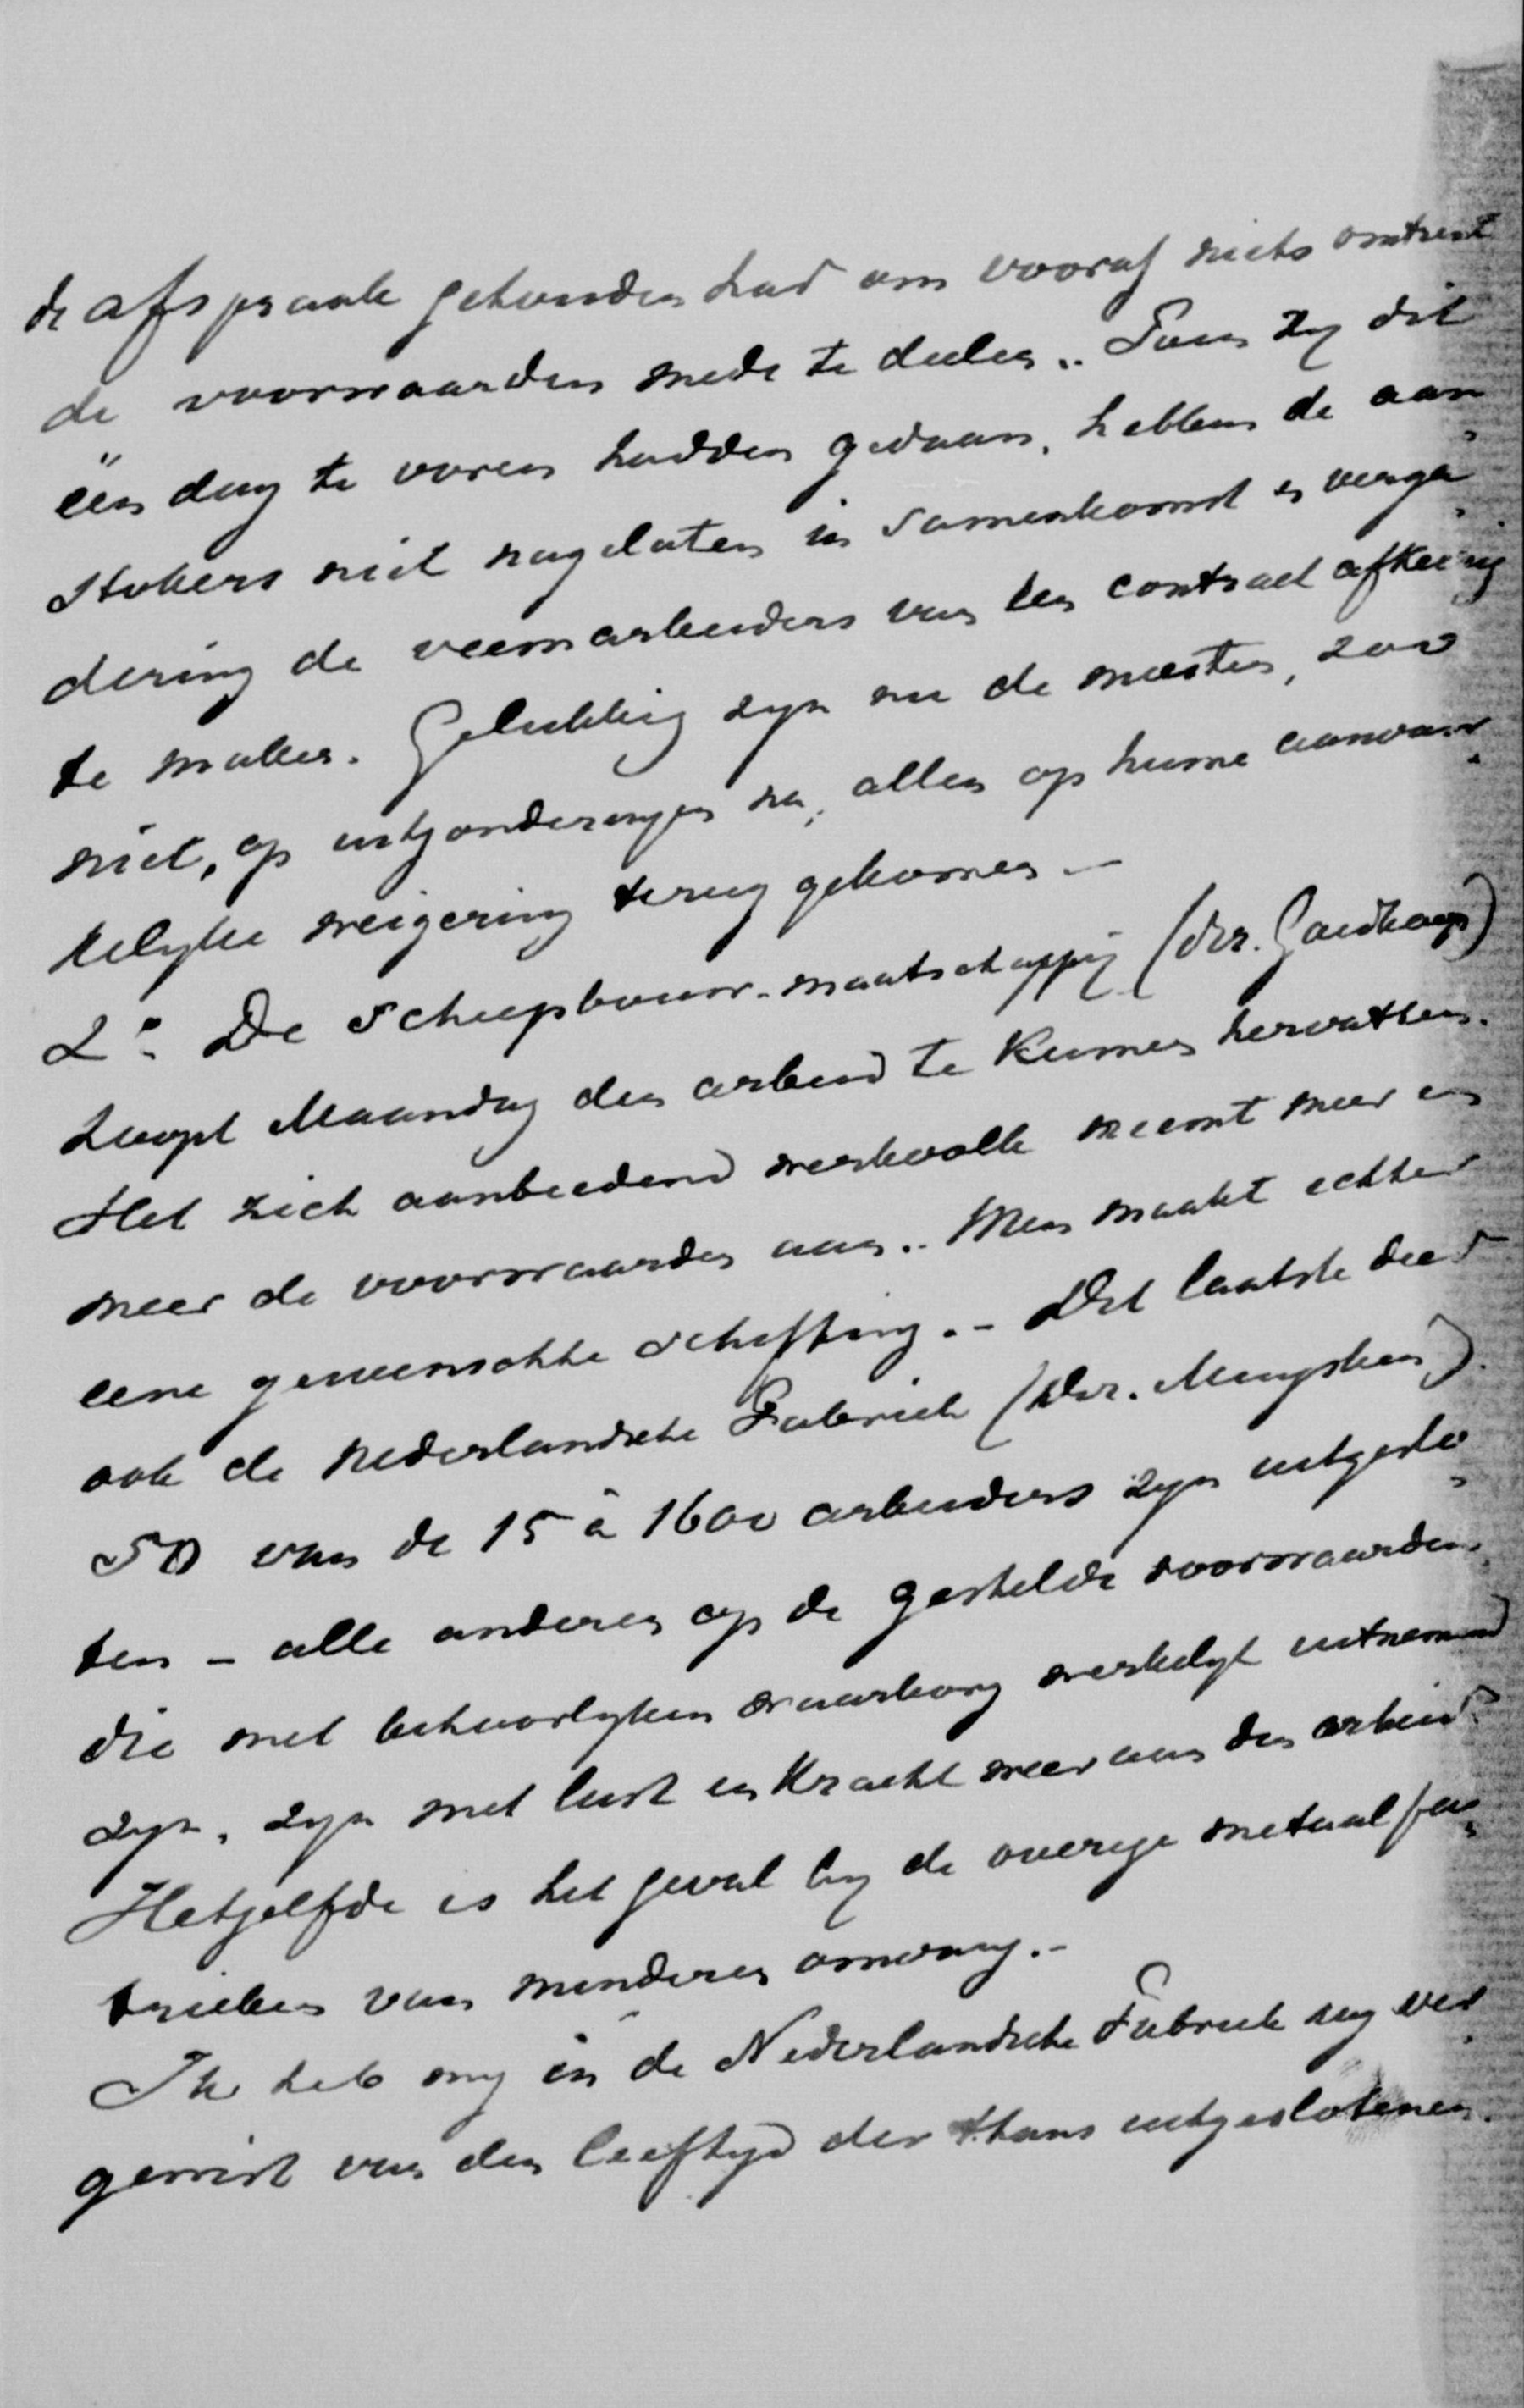 de afspraak gehouden had om vooraf niets omtrent
de voorwaarden mede te deelen.. Toen zy dit
één dag te voren hadden gedaan, hebben de aan-
stokers niet nagelaten in samenkomst en verga-
dering de veemarbeiders van een contract afkeerig
te maken. Gelukkig zyn nu de meesten, zoo
niet, op uitzonderingen na, allen op hunne aanvan-
kelyke weigering terug gekomen.-
2°. De Scheepsbouw-maatschappij (dir. Goedkoop)
hoopt Maandag den arbeid te kunnen hervatten.
Het zich aanbiedend werkvolk neemt meer en
meer de voorwaarden aan.. Men maakt echter
eene gewenschte schifting.- Dit laatste deed
ook de Nederlandsche Fabriek (Dir. Muysken).
50 van de 15 à 1600 arbeiders zyn uitgeslo-
ten - alle anderen op de gestelde voorwaarden,
die met behoorlyken waarborg werkelyk uitnemend
zyn, zyn met lust en kracht weer aan den arbeid.
Hetzelfde is het geval by de overige metaalfa-
brieken van minderen omvang.-
Ik heb my in de Nederlandsche Fabriek nog ver-
gewist van den leeftyd der thans uitgeslotenen.